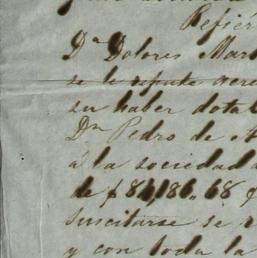 Refiér
Dª Dolores Mar
se le repute acre
su haber dotal
Dn Pedro de A
á la sociedad
de $ 84,186.68
suscitarse se
y con toda la